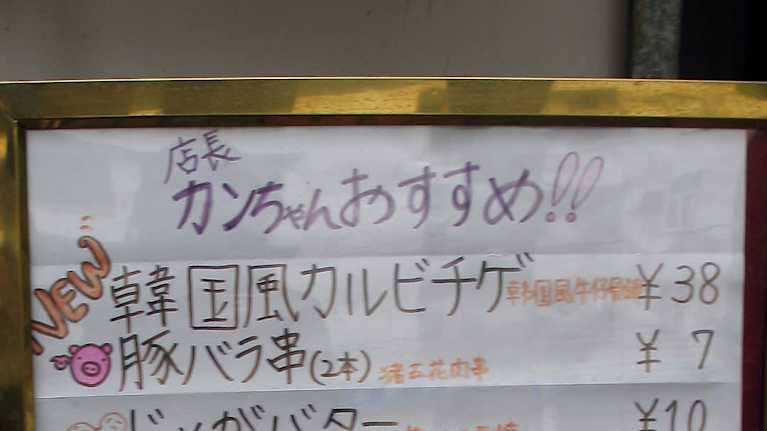 店長
カンちゃんおすすめ!!
NEW
韓国風カルビチゲ 韓国風牛仔骨鍋 ¥38
豚バラ串(2本) 猪五花肉串 ¥7
じゃがバター ¥10